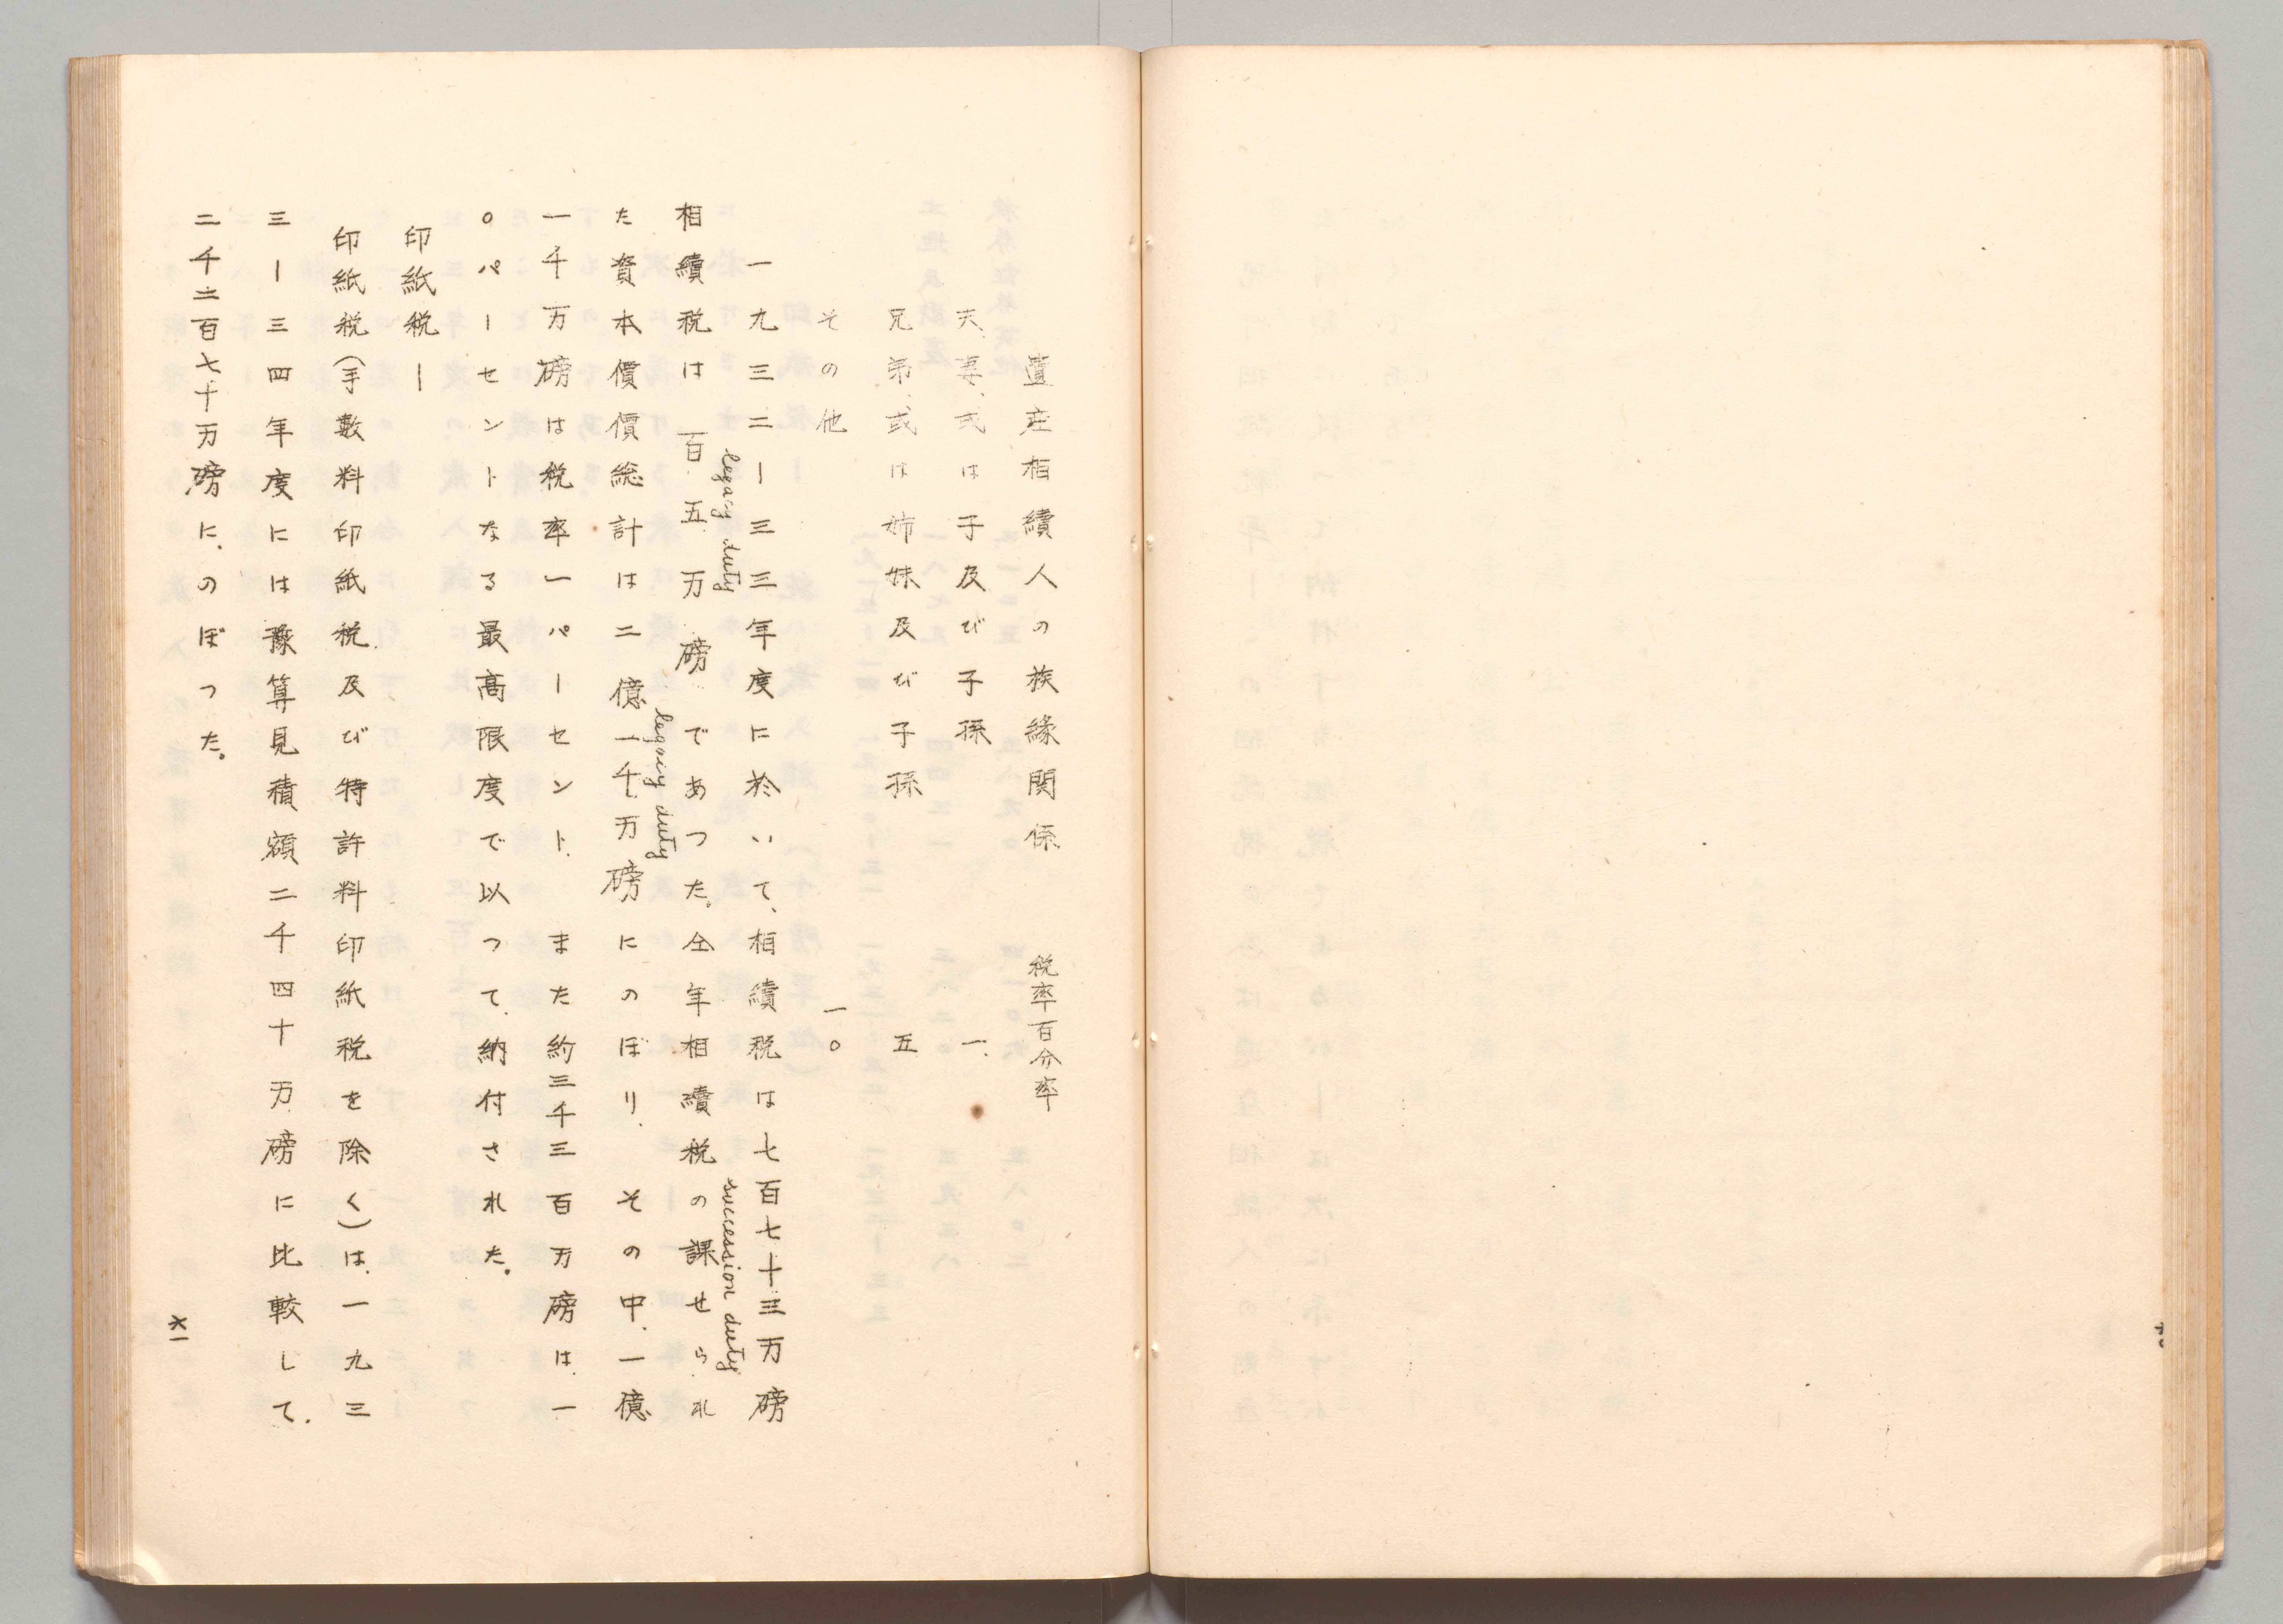 遺産相續人の族縁関係　税率百分率
夫、妻、或は子及び子孫　一、
兄弟、或は姉妹及び子孫　五
その他　一〇
一九三二ー三三年度に於いて、相續税は七百七十三万磅
legacy duty　succession duty
相續税は百五万磅であつた。仝年相續税の課せられ
legacy duty
た資本價價総計は二億一千万磅にのぼり、その中、一億
一千万磅は税率一パーセント、また約三千三百万磅は、一
〇パーセントなる最高限度で以つて、納付された。
印紙税ー
印紙税（手數料印紙税及び特許料印紙税を除く）は、一九三
三ー三四年度には豫算見積額二千四十万磅に比較して、
二千二百七十万磅に、のぼつた。
六一